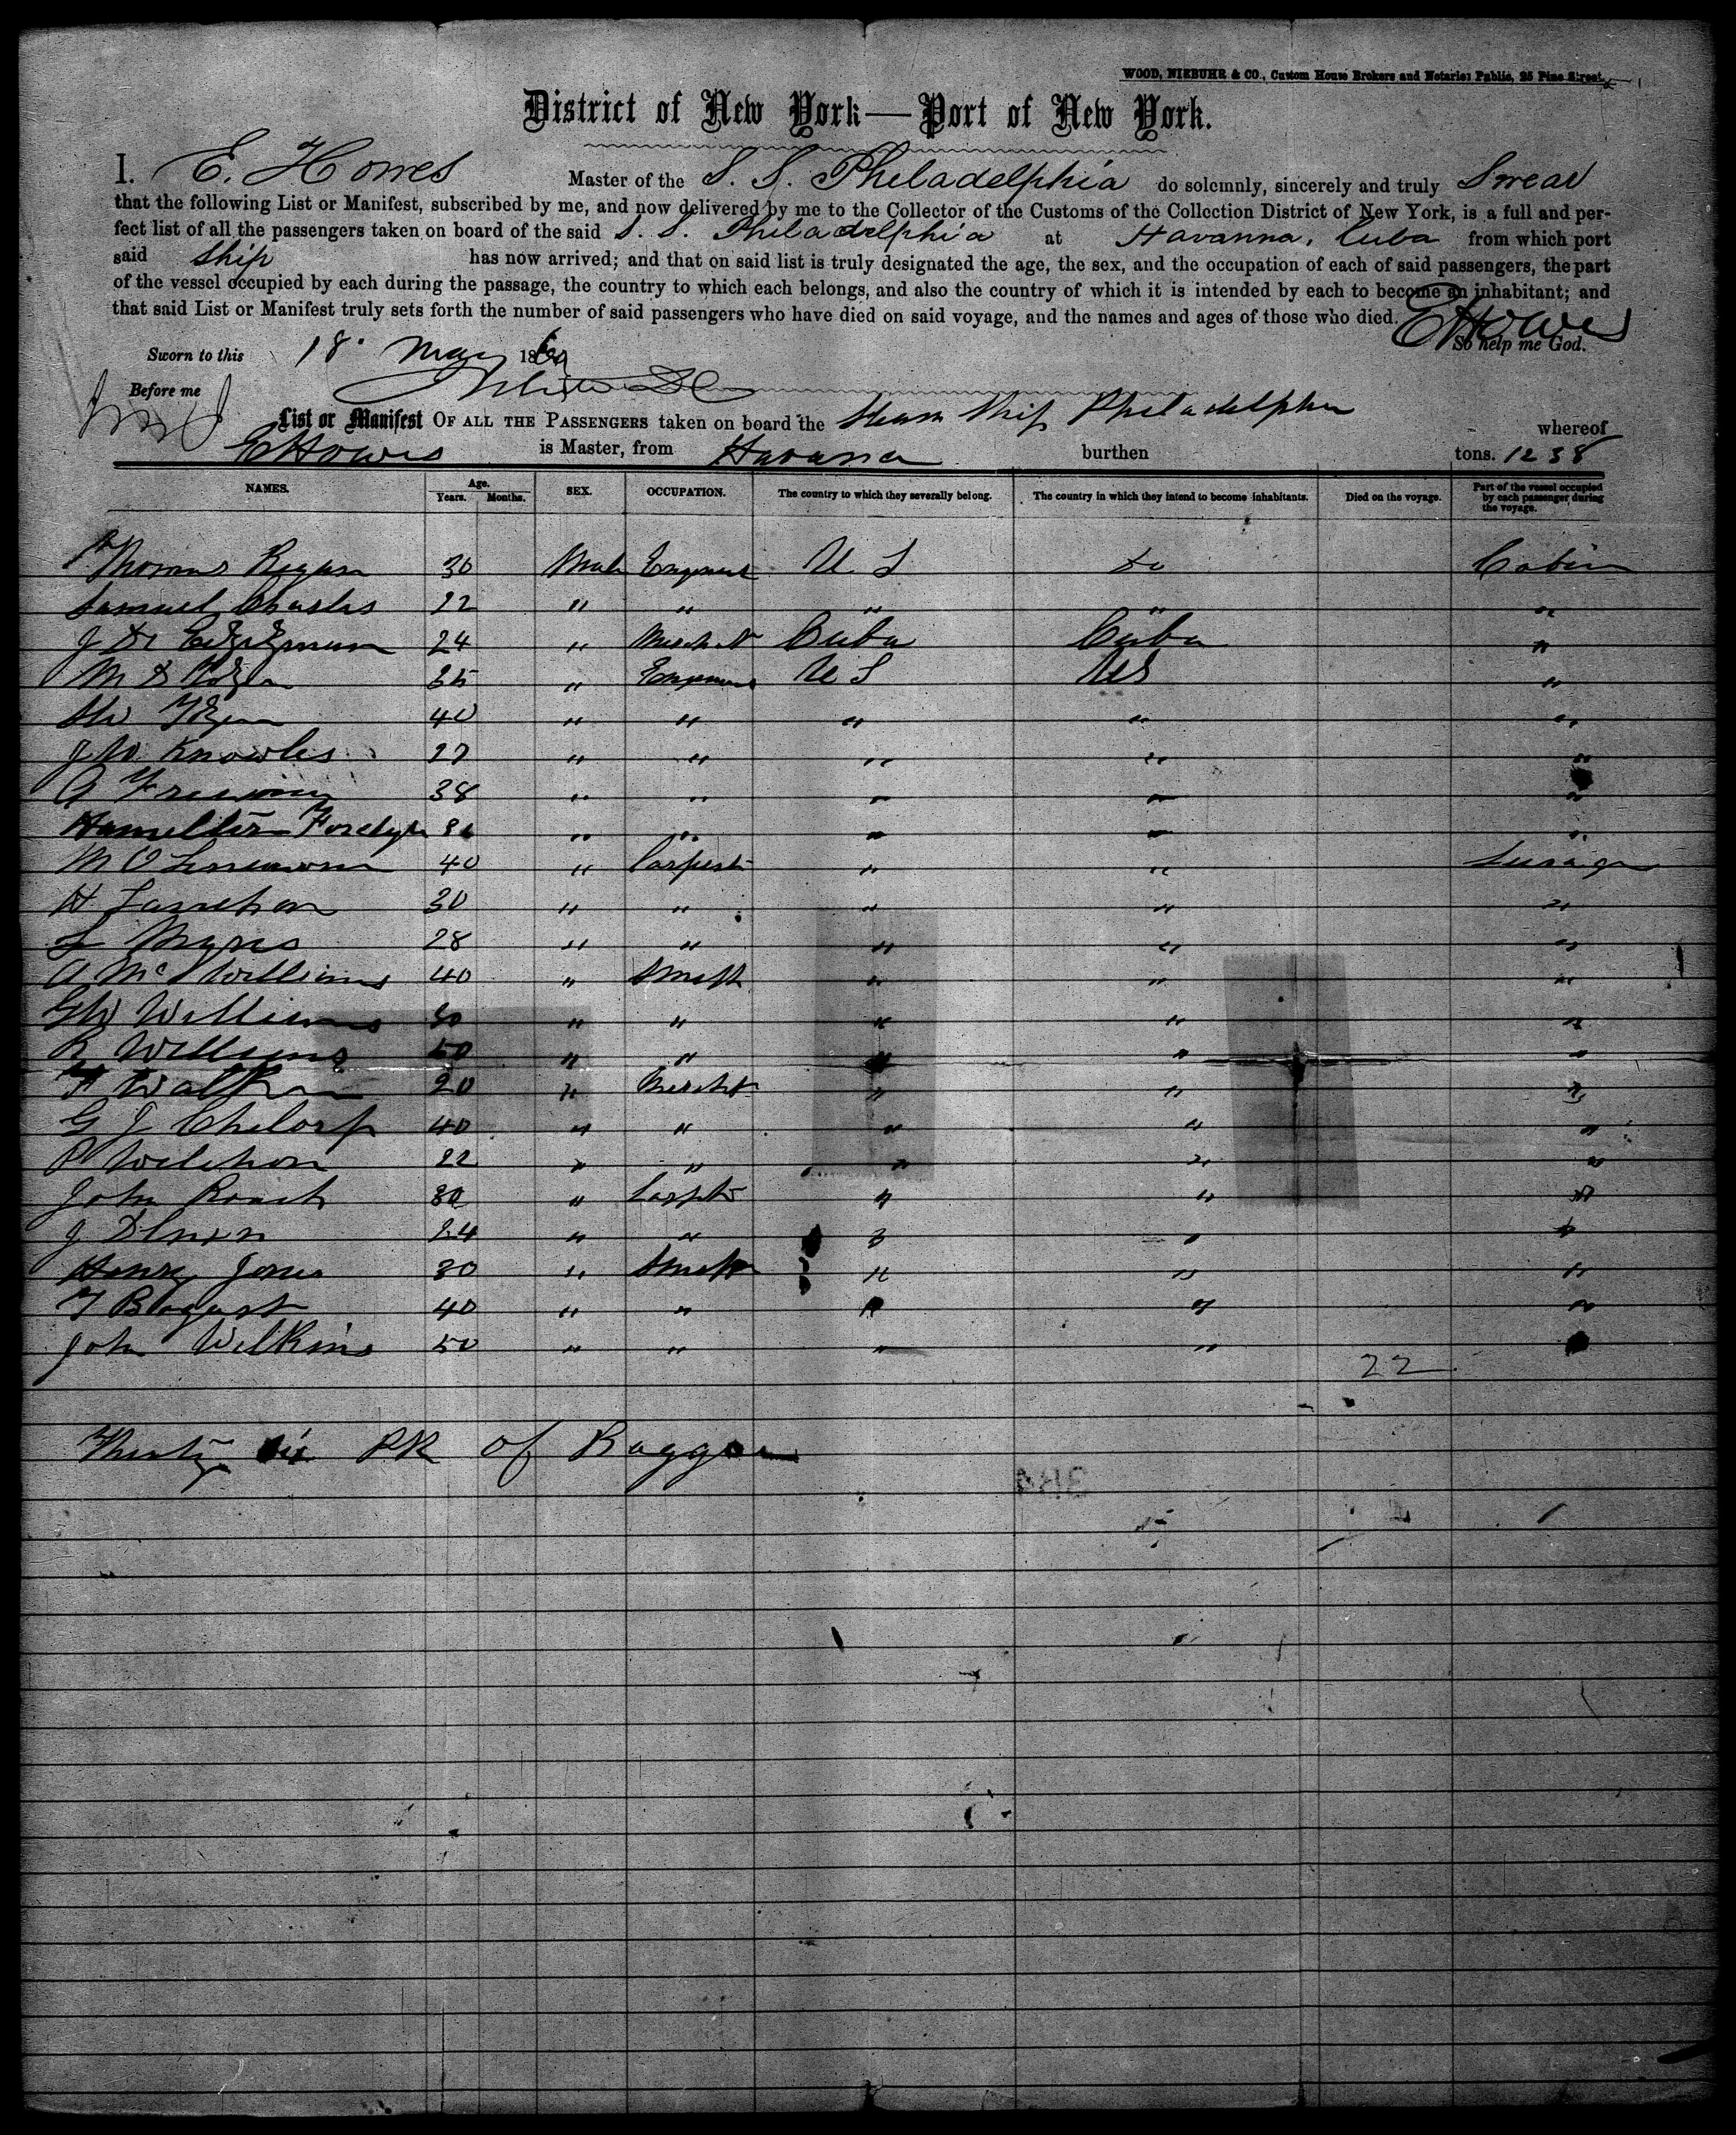 WOOD, NIEBUHR & CO., Custom House Brokers and Notaries Public, 25 Pine Street.
District of New York—Port of New York.
I. E. Howes Master of the S. S. Philadelphia do solemnly, sincerely and truly Swear
that the following List or Manifest, subscribed by me, and now delivered by me to the Collector of the Customs of the Collection District of New York, is a full and per-
fect list of all the passengers taken on board of the said S. S. Philadelphia at Havanna, Cuba from which port
said Ship has now arrived; and that on said list is truly designated the age, the sex, and the occupation of each of said passengers, the part
of the vessel occupied by each during the passage, the country to which each belongs, and also the country of which it is intended by each to become an inhabitant; and
that said List or Manifest truly sets forth the number of said passengers who have died on said voyage, and the names and ages of those who died.
E Howes
So help me God.
Sworn to this 18 May 186
Before me
List or Manifest OF ALL THE PASSENGERS taken on board the Steam Ship Philadelphia whereof
E Howes is Master, from Havana burthen tons. 1238
NAMES. Age. Years. Months. SEX. OCCUPATION. The country to which they severally belong. The country in which they intend to become inhabitants. Died on the voyage. Part of the vessel occupied by each passenger during the voyage.
Thomas Regan 30 Male U. S do Cabin
Samuel Charles 22 " " " " "
J 24 " Mercht Cuba Cuba "
M 35 " U S US "
40 " " " " "
J W Knowles 27 " " " " "
A Freeman 38 " " " " "
Hamilton " " " " "
M O 40 " Carpent " "
H 30 " " " " "
L Myres 28 " " " " "
A Mc Williams 40 " Smith " " "
GW Williams 30 " " " " "
R Williams 50 " " " " "
20 " Mercht " " "
G J 40 " " " " "
P 22 " " " " "
John Roach 30 " Carpt " " "
J 24 " " " " "
Henry Jones 30 " Smith " " "
T 40 " " " " "
John Wilkins 50 " " " "
22
Thirty six PK of Baggage